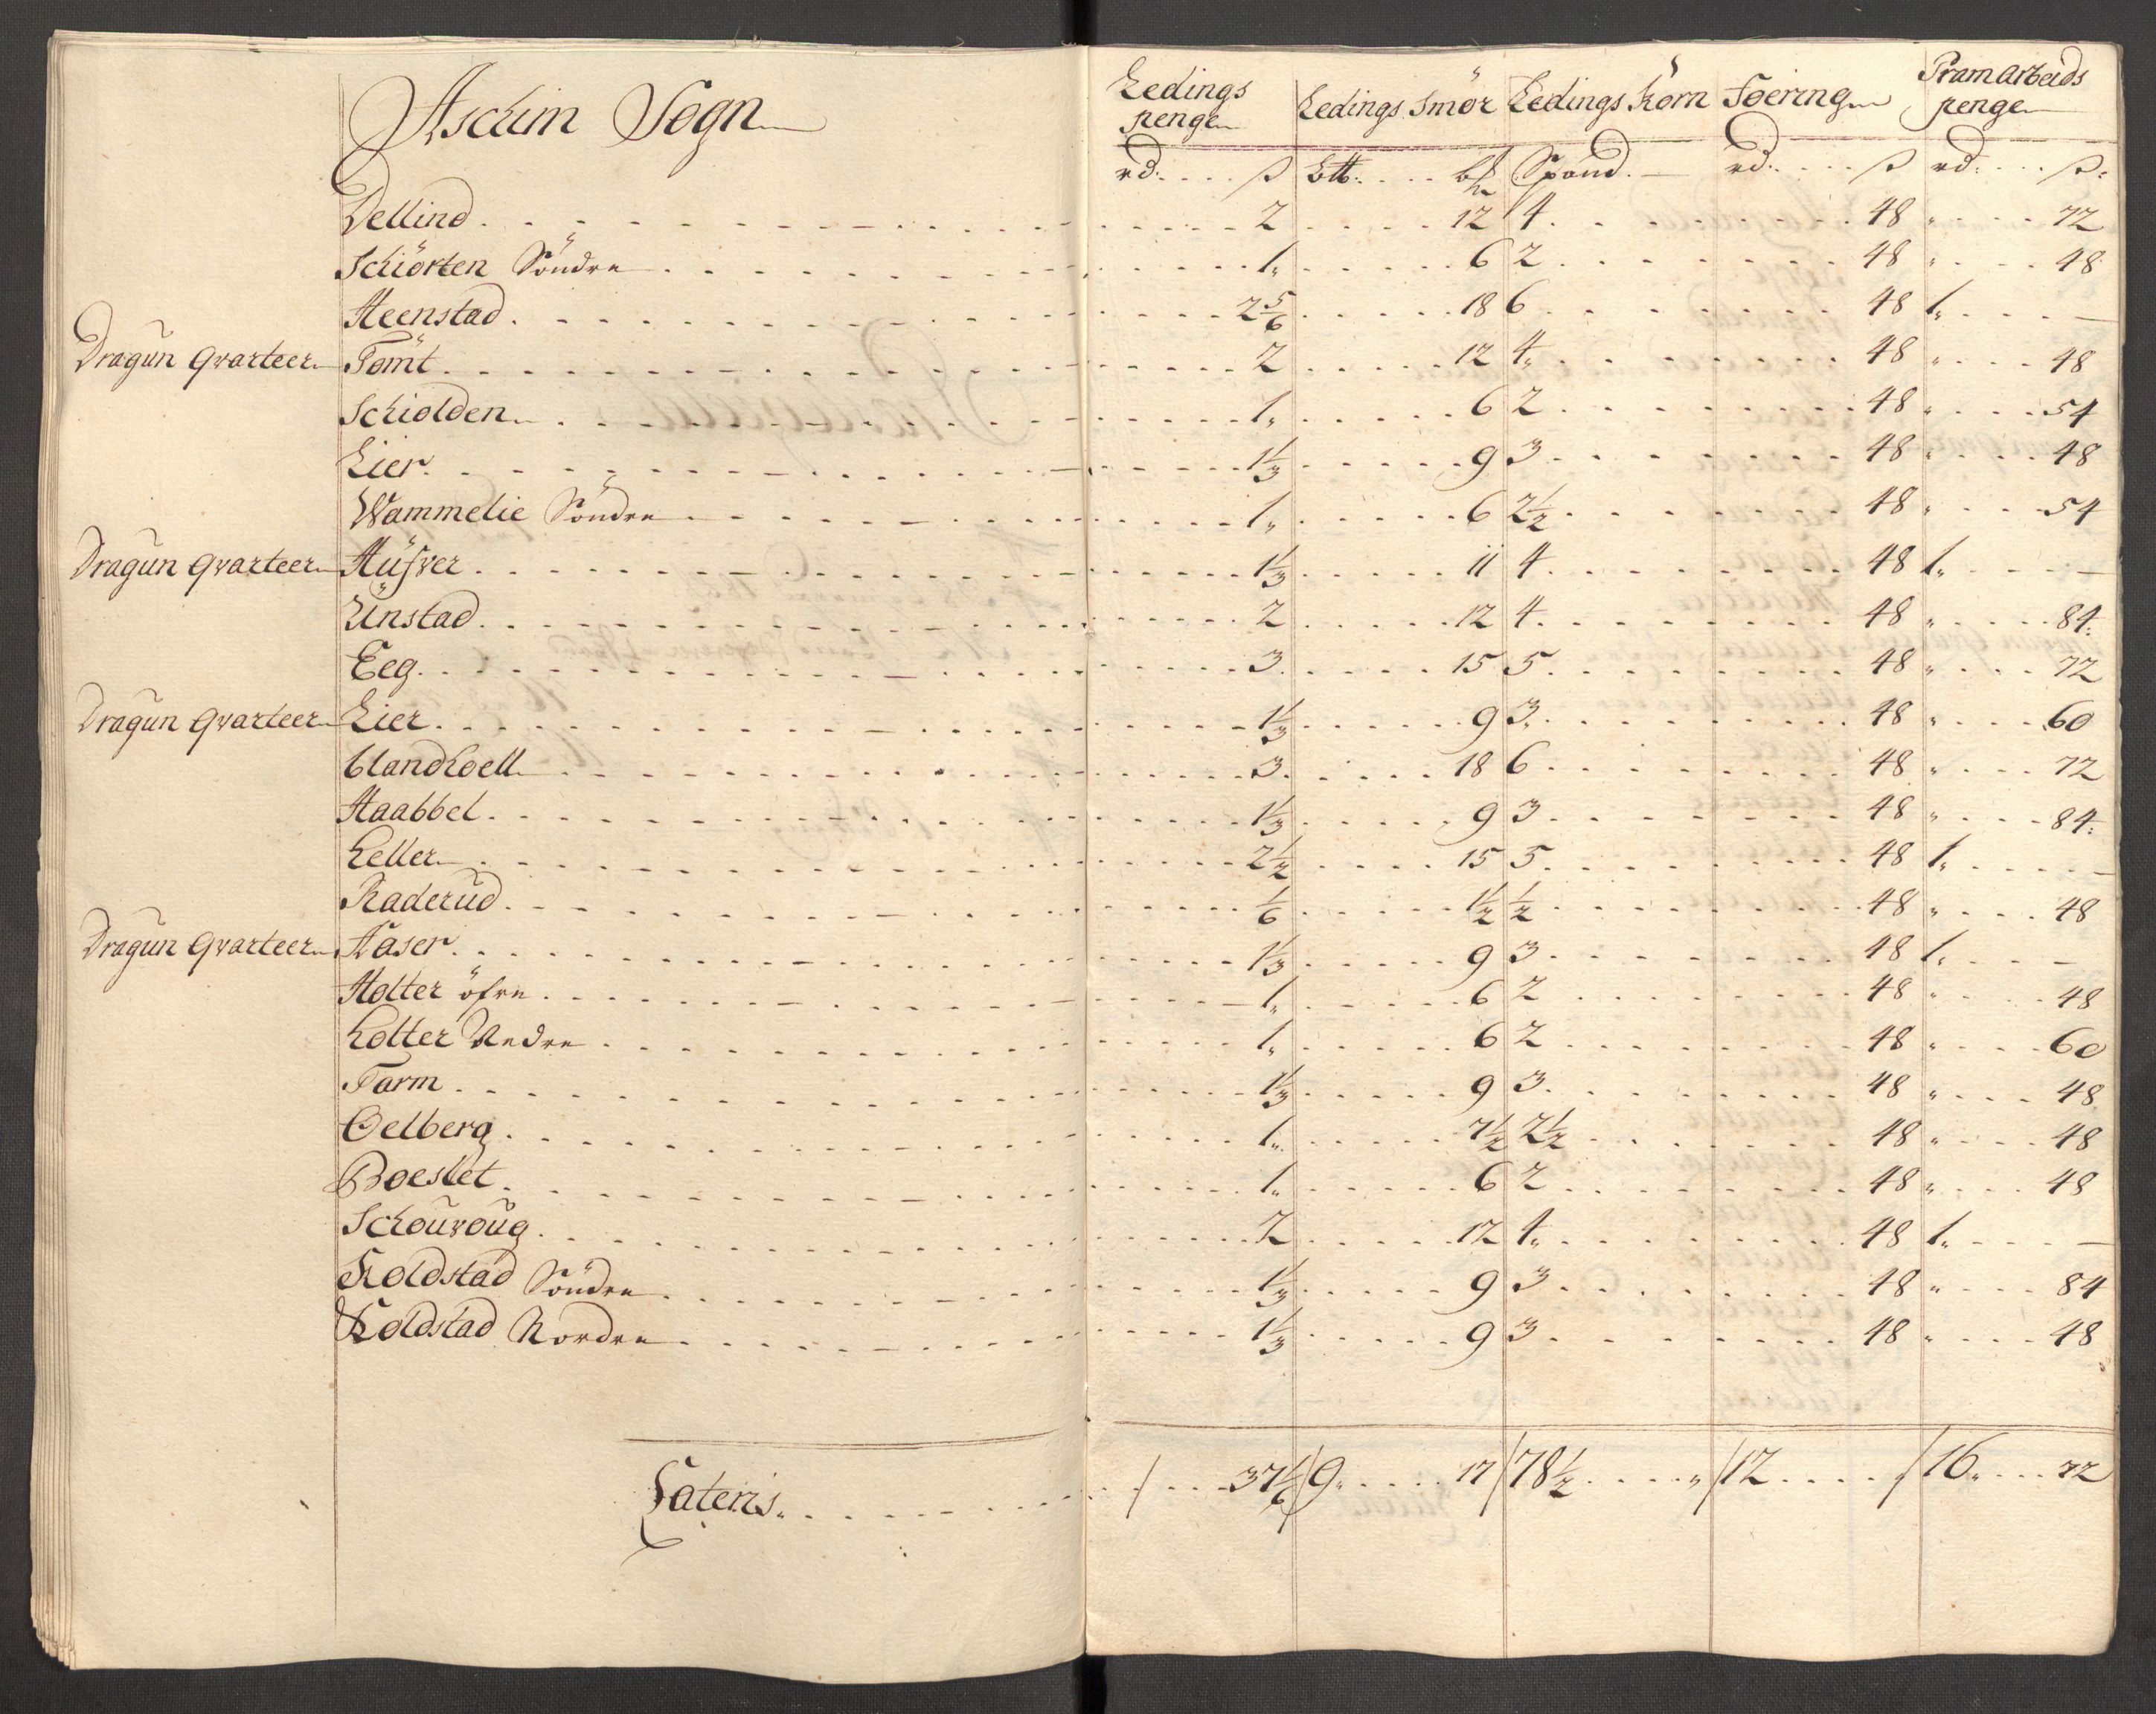 Aschim Sogn | Ledings penge | Ledings Smör | Ledings Korn | Foering | Pramarbeids penge
rd: ß | Spand. | rd: ß | rd: ß:
Dellind 2 12 4 48 " 72
Schiörten Söndre 1" 6 2 48 " 48
Heenstad 2 5/6 18 6 48 1" —
Dragun Qvarteer Tomt 2 12 4" 48 " 48
Schiolden 1" 6 2 48 " 54
Lier 1 1/3 9 3 48 " 48
Wammelie Söndre 1" 6 2 1/2 48 " 54
Dragun Qvarteer Hüfver 1 1/3 11 4 48 1" —
Unstad 2 12 4 48 " 84:
Eeg 3 15 5 48 " 72
Dragun Qvarteer Lier 1 1/3 9 3 48 " 60
blandkoell 3 18 6 48 " 72
Haabbel 1 1/3 9 3 48 " 84:
Keller 2 1/2 15 5 48 1" —
Raderud 1/6 1 1/2 1/2 48 " 48
Dragun Qvarteer Haser 1 1/3 9 3 48 1" —
Holter öfre 1" 6 2 48 " 48
Holter Nedre 1" 6 2 48 " 60
Farm 1 1/3 9 3 48 " 48
Oelberg 1" 7 1/2 2 1/2 48 " 48
Boeslet 1" 6 2 48 " 48
Schouroug 2 12 4" 48 1" —
Koldstad Söndre 1 1/3 9 3 48 " 84
Koldstad Nordre 1 1/3 9 3 48 " 48
Lateris / 37 1/6 / 9" 17 / 78 1/2 " / 12 / 16" 72